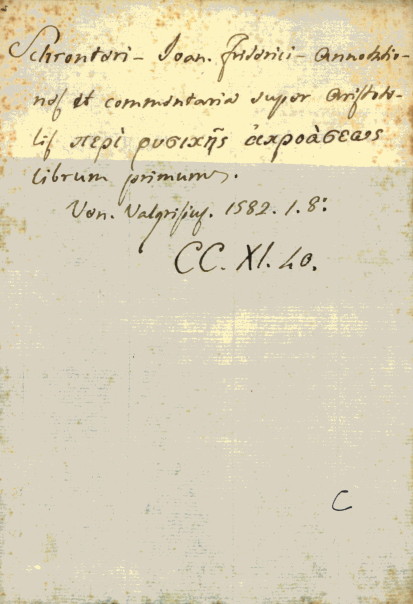 Schronteri - Ioan. Friderici - Annotatio-
nes et commentaria super Aristote-
lis περὶ φυσικῆς ἀκροάσεως
librum primum.
Ven. Valgrisius. 1582. 1. 8:
CC. XI. 40.
C